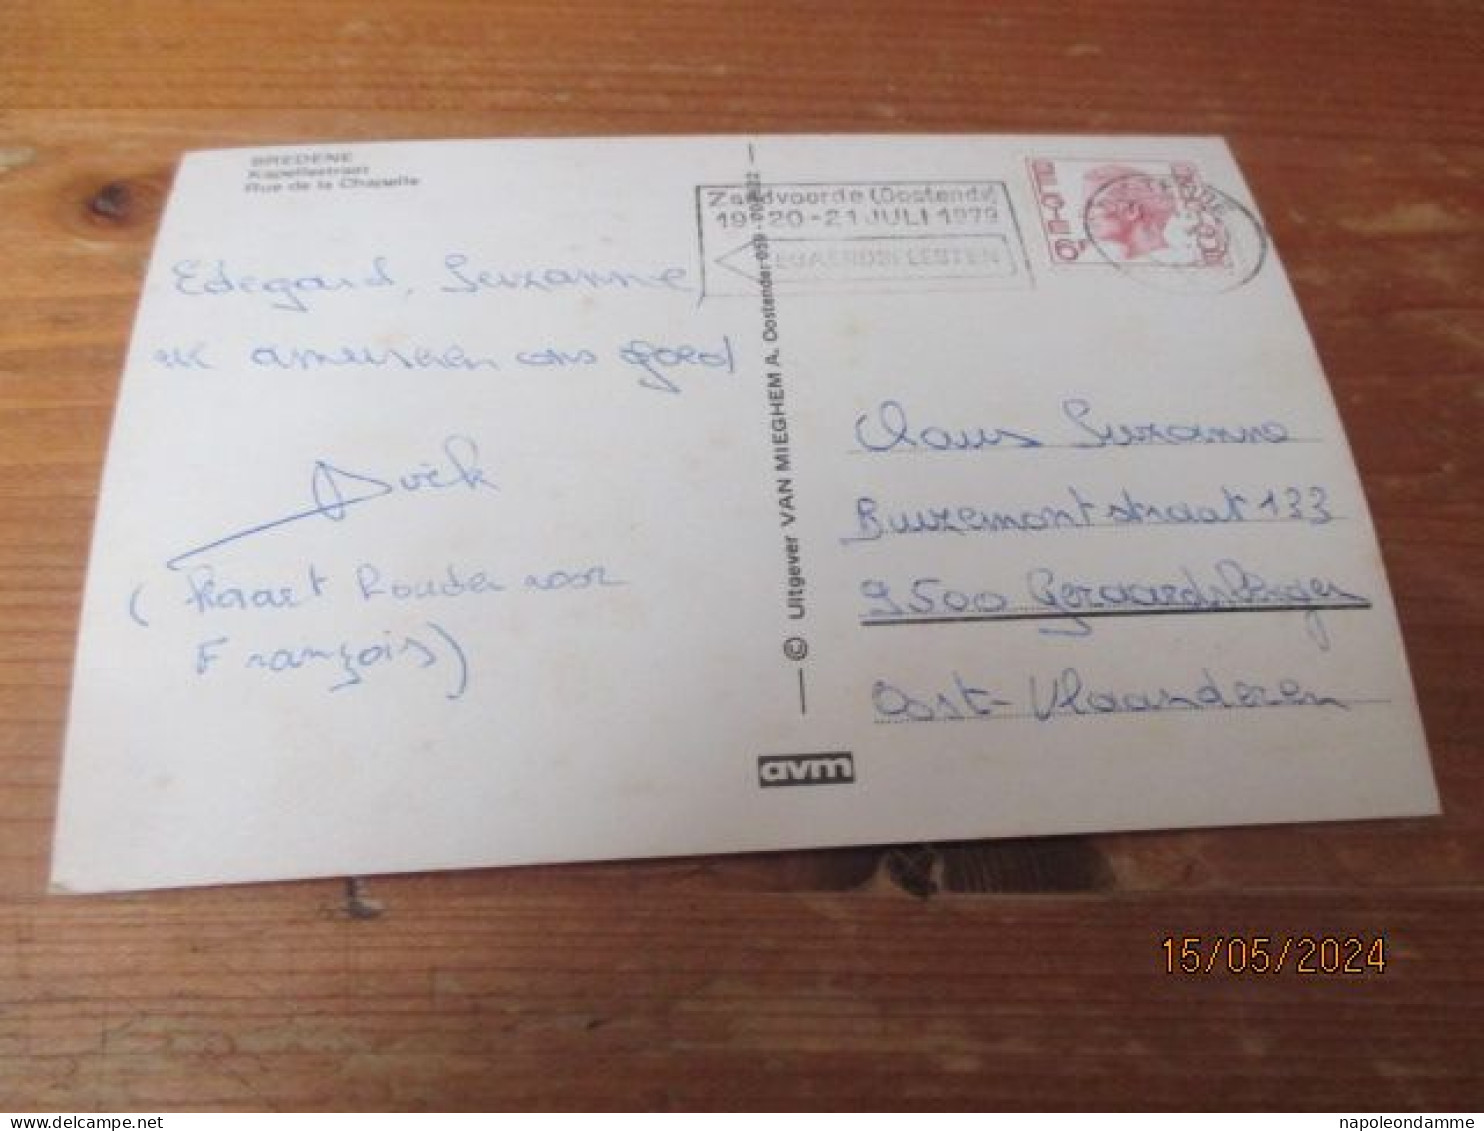 BREDENE
Kapellestraat
Rue de la Chapelle
Zandvoorde (Oostende)
19-20-21 JULI 1979
BELGIE
Edegard, Suzanne,
we amuseren ons goed
Dirk
(kaart houden voor
François)
© Uitgever VAN MIEGHEM A. Oostende
avm
Claus Suzanne
Buizemontstraat 133
9500 Geraardsbergen
Oost-Vlaanderen
15/05/2024
napoleondamme